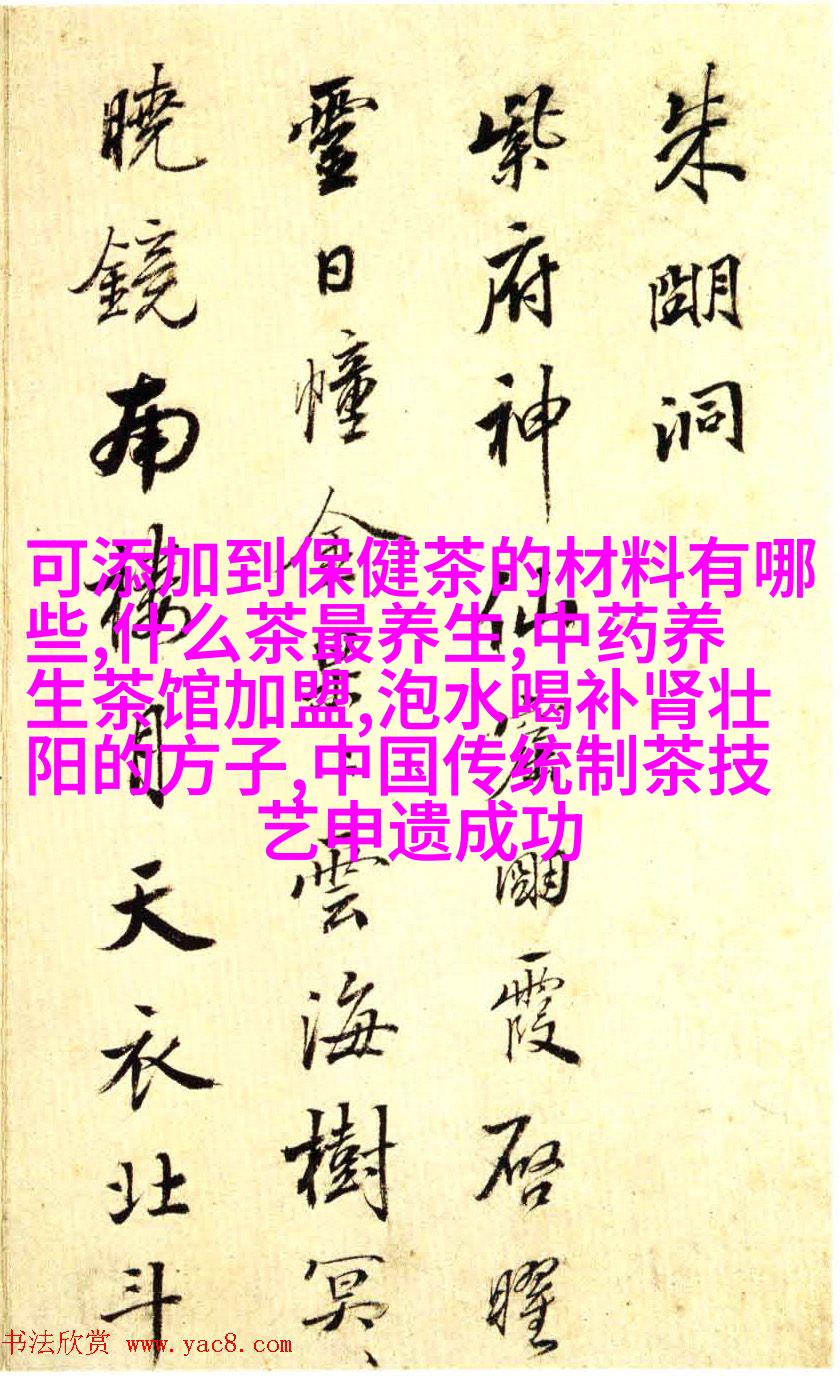 朱朙洞
紫府神仙窟朙霞啓曜
靈日幢金晃〻雲海樹冥〻
曉鏡南樓月天衣北斗
可添加到保健茶的材料有哪
些,什么茶最养生,中药养
生茶馆加盟,泡水喝补肾壮
阳的方子,中国传统制茶技
艺申遗成功
书法欣赏 www.yac8.com